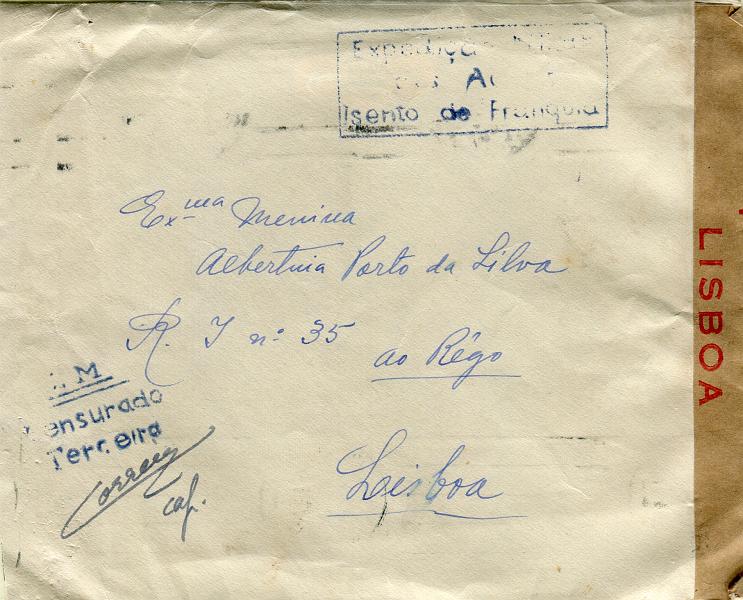 Expediçã
Isento de Franquia
Ex.ma Menina
Albertina Porto da Silva
R. I nº 35
ao Rêgo
Lisboa
M
ensurado
Terceira
cap.
LISBOA